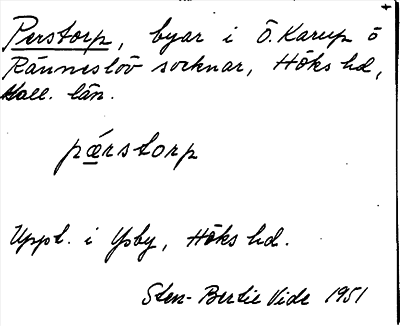 Perstorp, byar i Ö. Karup o
Ränneslöv socknar, Höks hd,
Hall. län.
pǽrstorp
Uppt. i Ysby, Höks hd.
Sten-Bertil Vide 1951